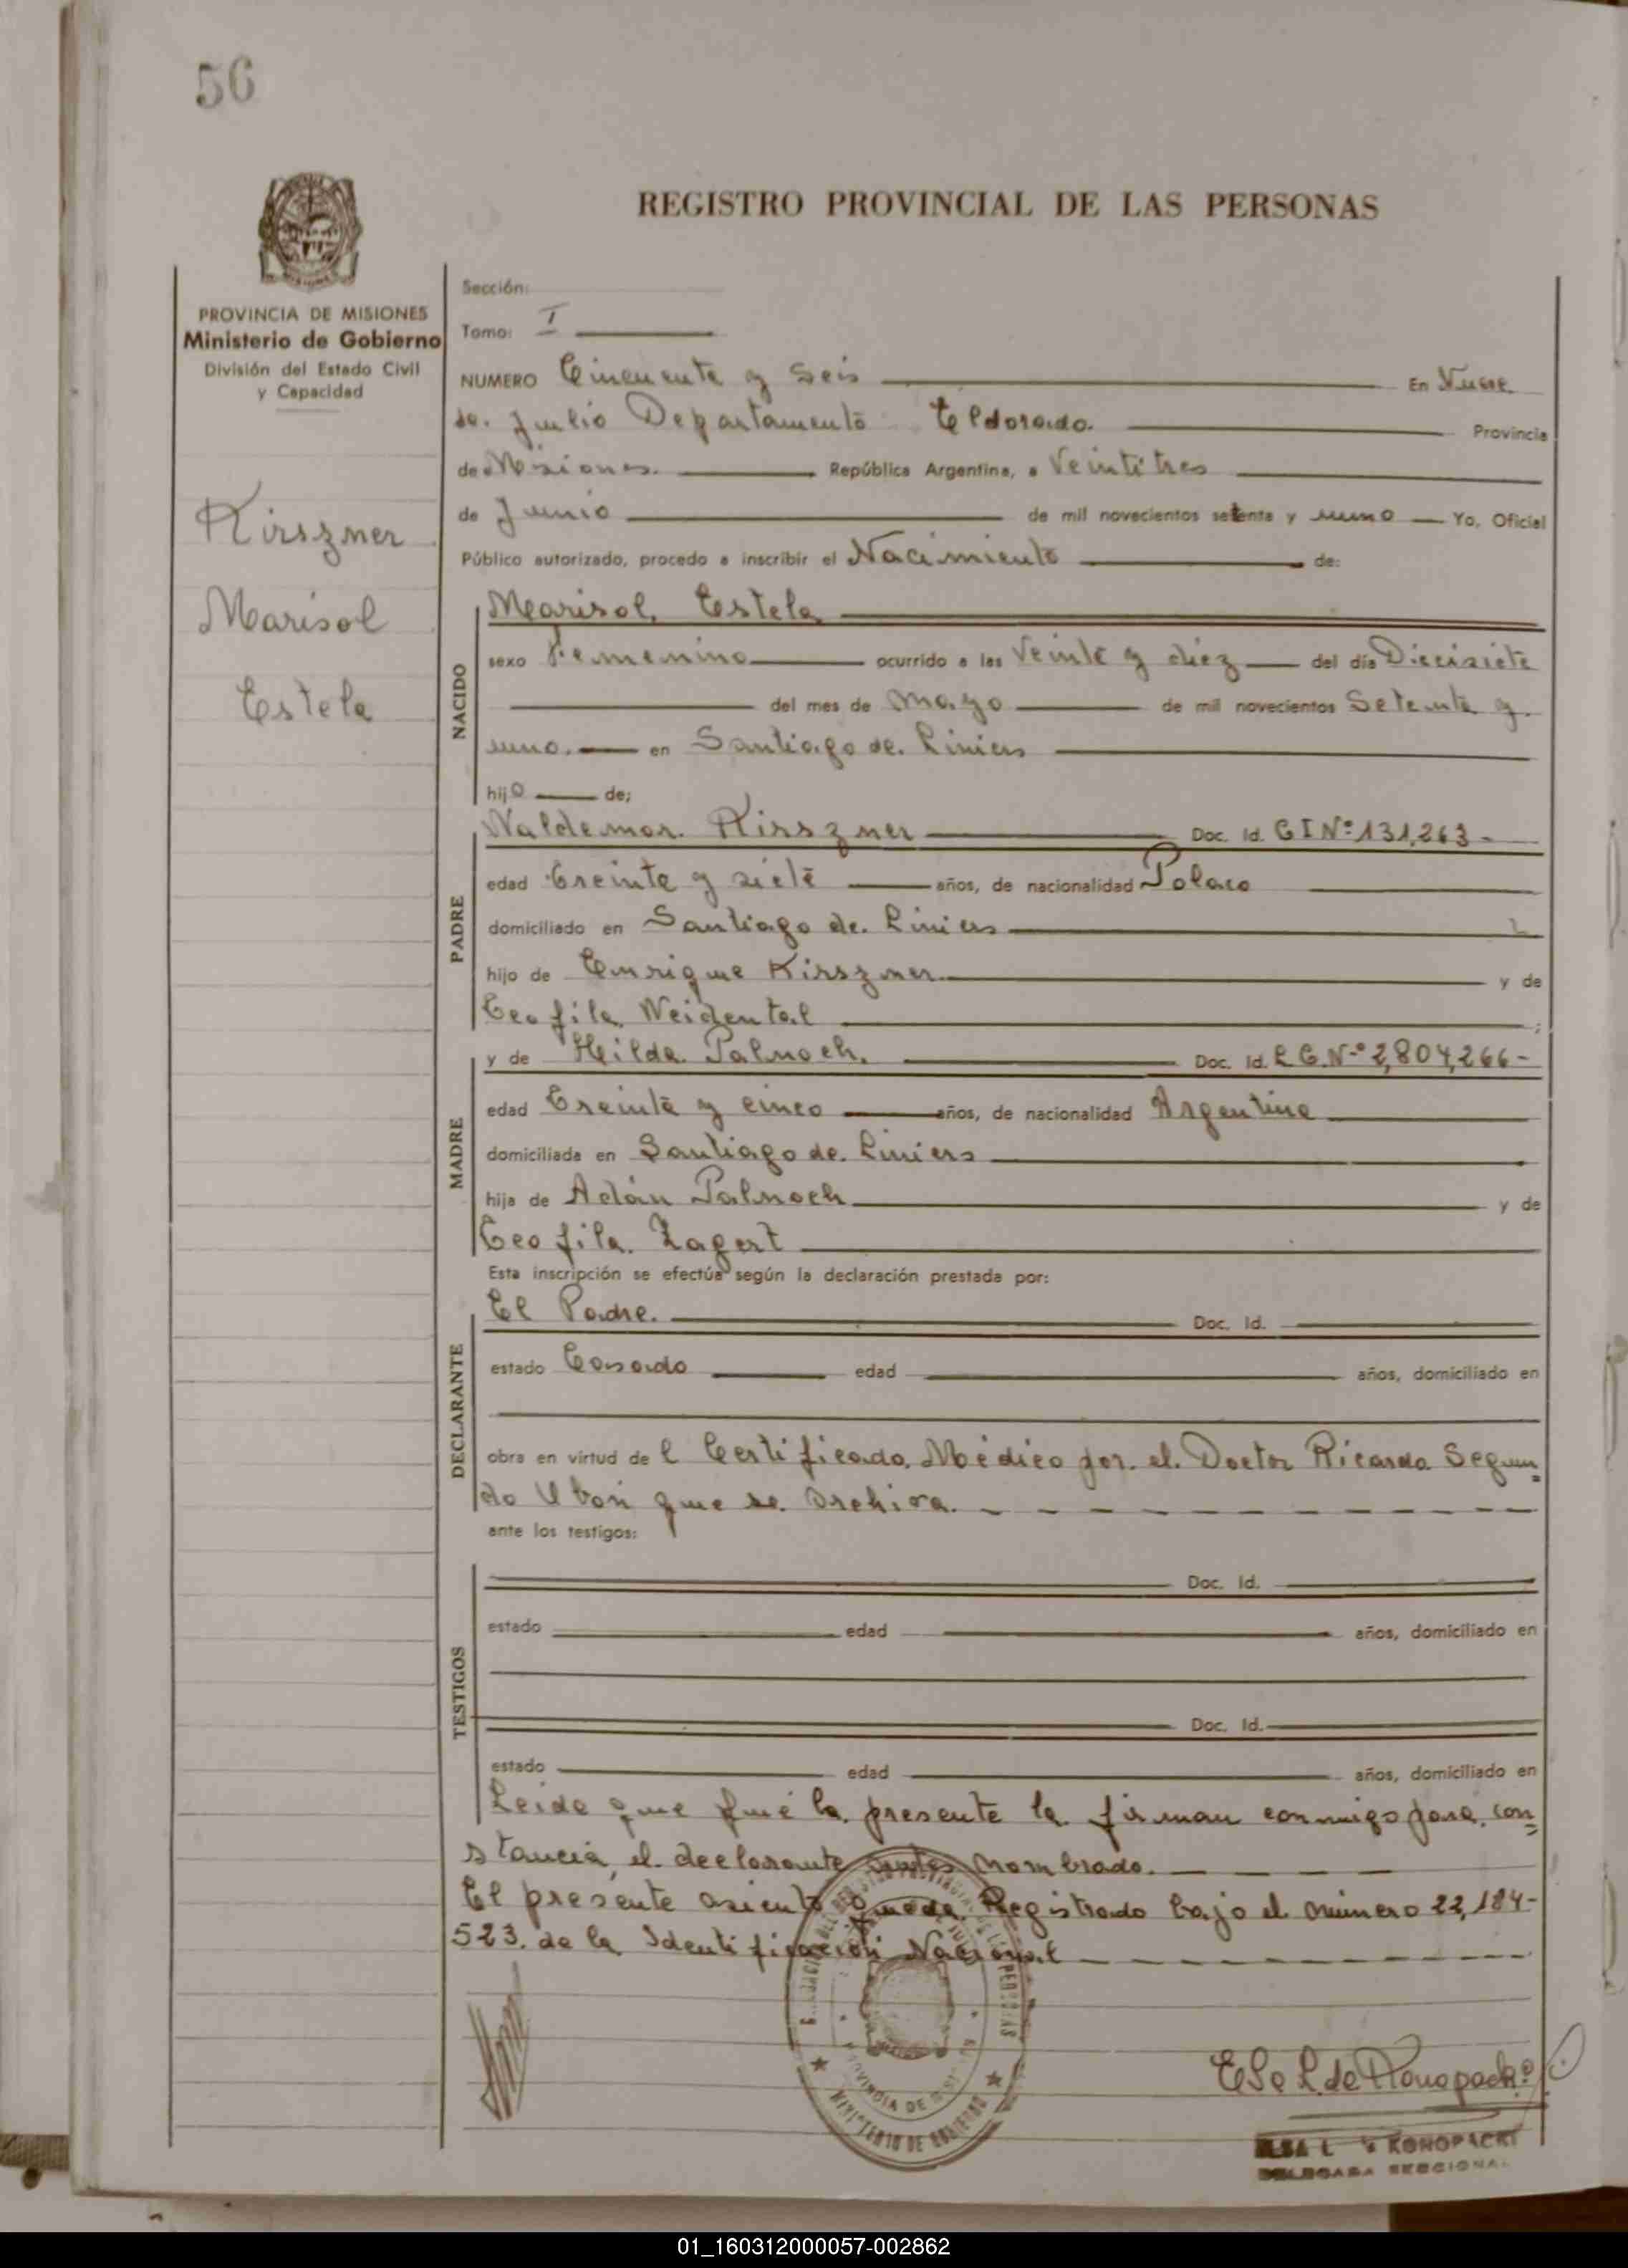 56
REGISTRO PROVINCIAL DE LAS PERSONAS
PROVINCIA DE MISIONES
Ministerio de Gobierno
División del Estado Civil
y Capacidad
Kirszner
Marisol
Estela
Sección:
Tomo: I
NUMERO Cincuenta y Seis En Nueve
de. Julio Departamento Eldorado. Provincia
de Misiones. República Argentina, a Veintitres
de Junio de mil novecientos setenta y uno Yo, Oficial
Público autorizado, procedo a inscribir el Nacimiento de:
NACIDO
Marisol, Estela
sexo Femenino ocurrido a las Veinte y diez del día Diecisiete
del mes de Mayo de mil novecientos Setenta y.
uno. en Santiago de. Liniers
hijo de;
PADRE
Waldemar. Kirszner Doc. Id. CI Nº 131,263-
edad Treinta y siete años, de nacionalidad Polaco
domiciliado en Santiago de. Liniers
hijo de Enrique Kirszner y de
Teofila Neidental ;
MADRE
y de Hilda Palnoch. Doc. Id. L C. Nº 2,804,266-
edad Treinta y cinco años, de nacionalidad Argentina
domiciliada en Santiago de. Liniers
hija de Adán Palnoch y de
Teofila. Zagert
Esta inscripción se efectúa según la declaración prestada por:
DECLARANTE
El Padre. Doc. Id.
estado Casado edad años, domiciliado en
obra en virtud de l Certificado Médico por. el. Doctor Ricardo Segun=
do que se. archiva.
ante los testigos:
TESTIGOS
Doc. Id.
estado edad años, domiciliado en
Doc. Id.
estado edad años, domiciliado en
Leida que fué la presente la firman conmigo para con=
stancia, el declarante antes nombrado.
El presente asiento queda Registrado bajo el número 22,184-
523. de la Identificación Nacional
PROVINCIA DE MISIONES
MINISTERIO DE GOBIERNO
Elsa L. de Konopacki
ELSA L. KONOPACKI
DELEGADA SECCIONAL
01_160312000057-002862